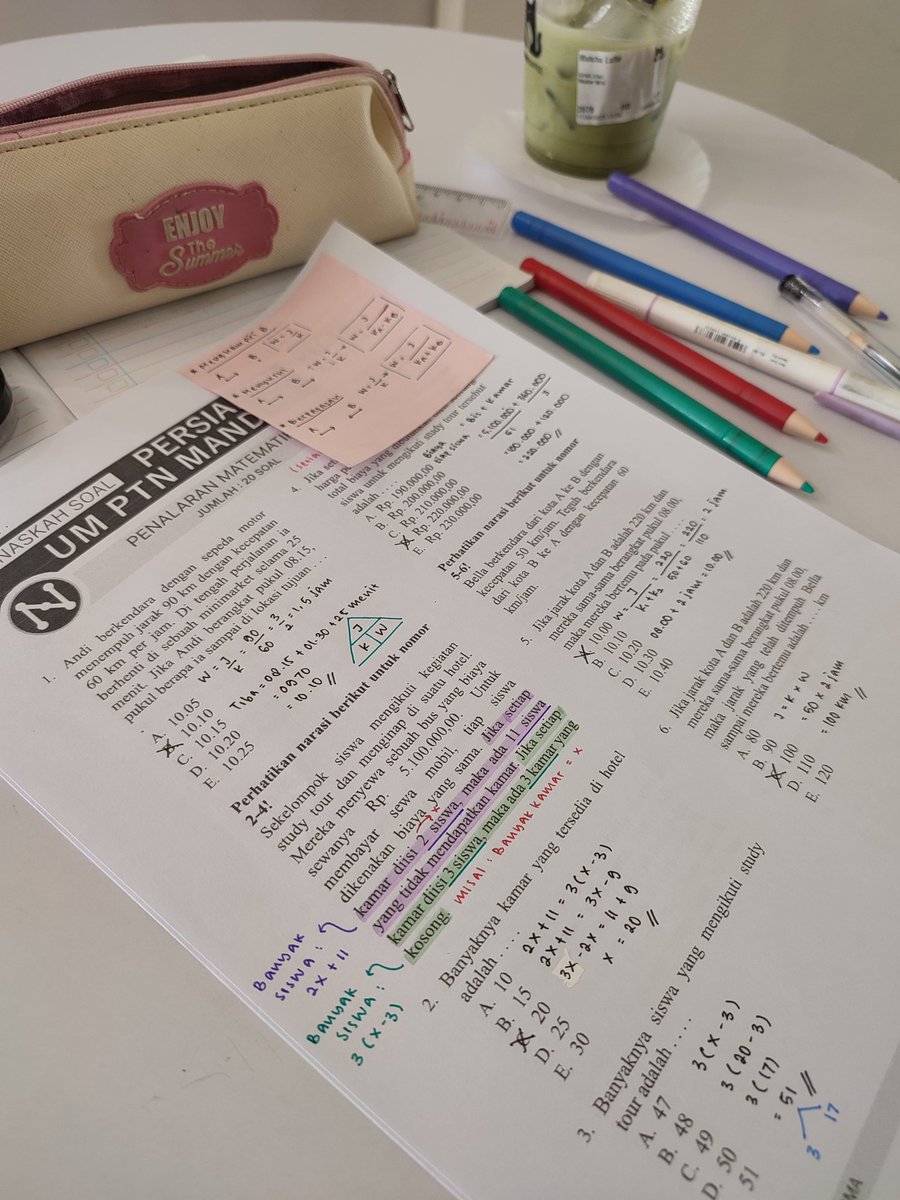 ENJOY
The
Summer
Matcha Latte
* Menyusul
* Berpapasan
NASKAH SOAL
PERSIA
UM PTN MAND
PENALARAN MATEMATI
JUMLAH: 20 SOAL
1. Andi berkendara dengan sepeda motor
menempuh jarak 90 km dengan kecepatan
60 km per jam. Di tengah perjalanan ia
berhenti di sebuah minimarket selama 25
menit. Jika Andi berangkat pukul 08.15,
pukul berapa ia sampai di lokasi tujuan...
W = J/K = 90/60 = 3/2 = 1,5 jam
Tiba = 08.15 + 01.30 + 25 menit
= 0970
= 10.10 //
J
K W
A. 10.05
B. 10.10
C. 10.15
D. 10.20
E. 10.25
Perhatikan narasi berikut untuk nomor
2-4!
Sekelompok siswa mengikuti kegiatan
study tour dan menginap di suatu hotel.
Mereka menyewa sebuah bus yang biaya
sewanya Rp. 5.100.000,00. Untuk
membayar sewa mobil, tiap siswa
dikenakan biaya yang sama. Jika setiap
kamar diisi 2 siswa, maka ada 11 siswa
yang tidak mendapatkan kamar. Jika setiap
kamar diisi 3 siswa, maka ada 3 kamar yang
kosong.
x
misal: Banyak kamar = x
Banyak
siswa:
2x + 11
Banyak
siswa:
3(x-3)
2. Banyaknya kamar yang tersedia di hotel
adalah ....
A. 10
B. 15
C. 20
D. 25
E. 30
2x + 11 = 3(x-3)
2x + 11 = 3x - 9
3x - 2x = 11 + 9
x = 20 //
3. Banyaknya siswa yang mengikuti study
tour adalah ....
A. 47
B. 48
C. 49
D. 50
51
3(x-3)
3(20-3)
3(17)
= 51 //
3 17
4. Jika
harga
total biaya yang
siswa untuk mengikuti study tour tersebut
adalah ....
A. Rp. 190.000,00
B. Rp. 200.000,00
C. Rp. 210.000,00
D. Rp. 220.000,00
E. Rp. 230.000,00
Biaya tiap siswa = Bis + Kamar
= 5.100.000/51 + 360.000/3
= 100.000 + 120.000
= 220.000 //
Perhatikan narasi berikut untuk nomor
5-6!
Bella berkendara dari kota A ke B dengan
kecepatan 50 km/jam. Teguh berkendara
dari kota B ke A dengan kecepatan 60
km/jam.
5. Jika jarak kota A dan B adalah 220 km dan
mereka sama-sama berangkat pukul 08.00,
maka mereka bertemu pada pukul ....
A. 10.00
B. 10.10
C. 10.20
D. 10.30
E. 10.40
W = J/K1+K2 = 220/50+60 = 220/110 = 2 jam
08.00 + 2 jam = 10.00 //
6. Jika jarak kota A dan B adalah 220 km dan
mereka sama-sama berangkat pukul 08.00,
maka jarak yang telah ditempuh Bella
sampai mereka bertemu adalah .... km
A. 80
B. 90
C. 100
D. 110
E. 120
J = K x W
= 50 x 2 jam
= 100 km //